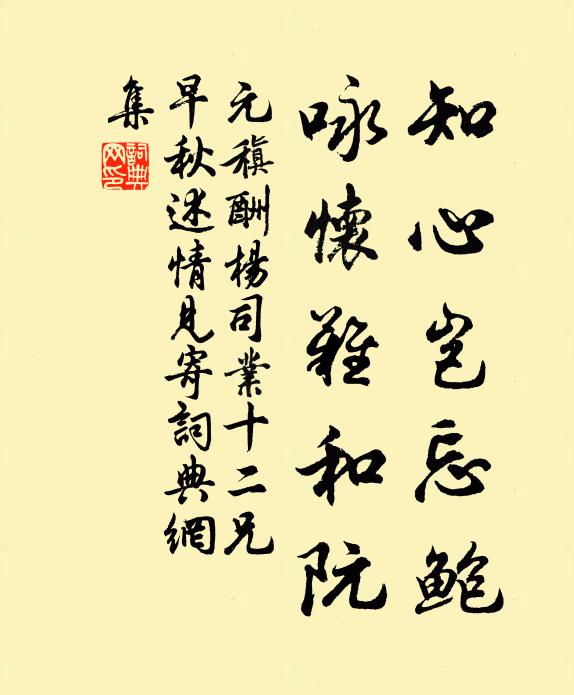 知心豈忘鮑
咏懷難和阮
元稹酬楊司業十二兄
早秋述情見寄詞典網
集
詞典網印